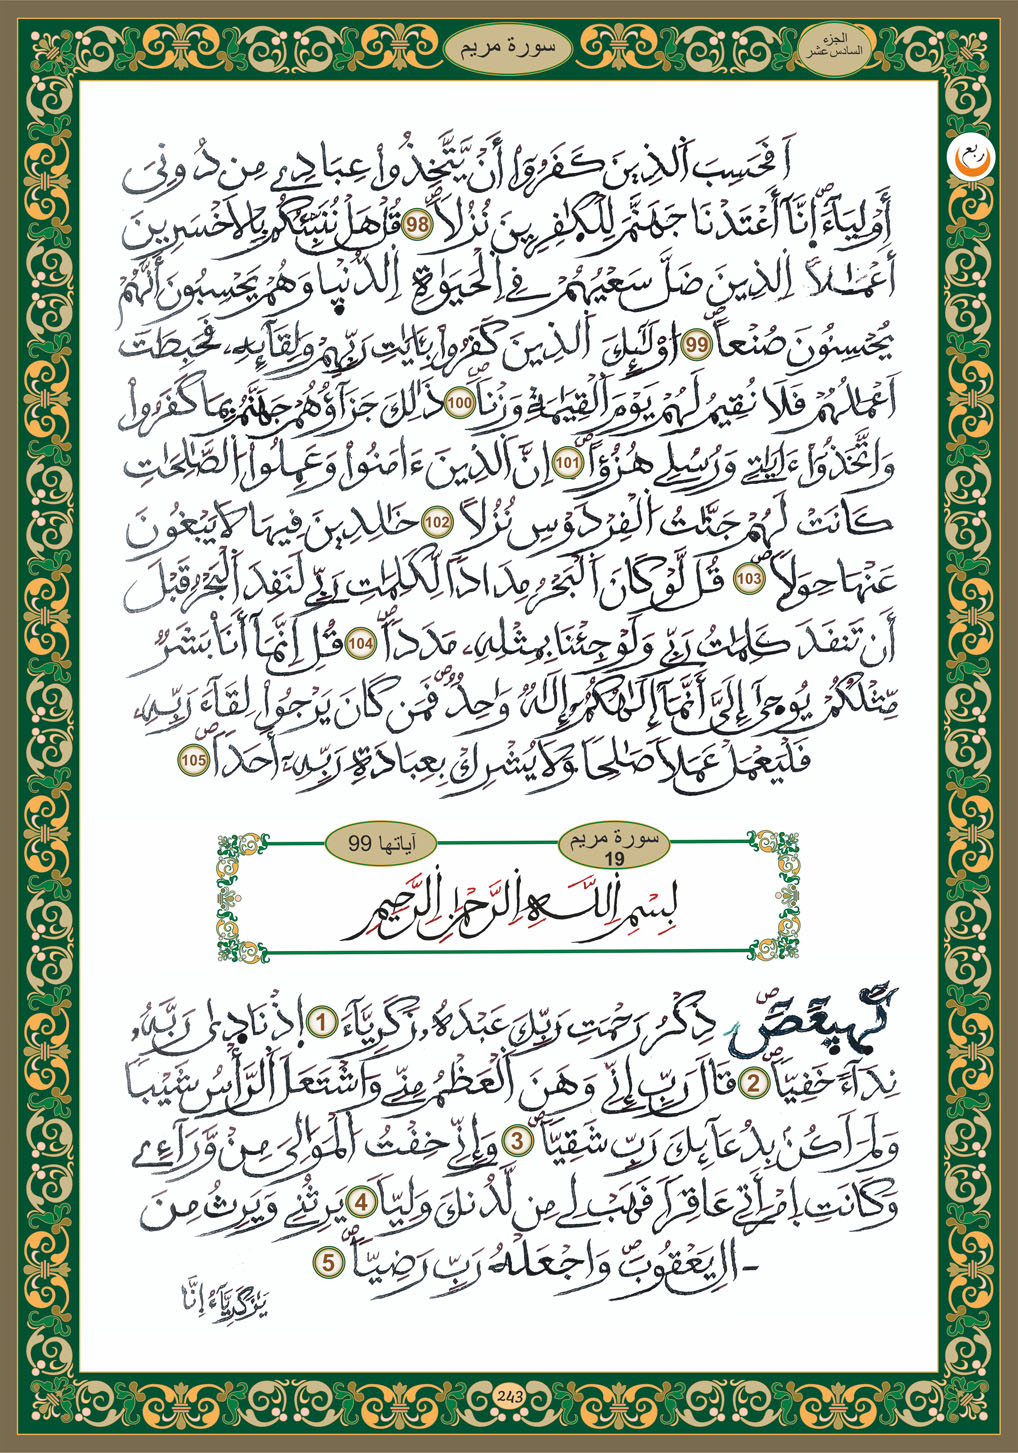 الجزء
السادس عشر
سورة مريم
ربع
اَفَحَسِبَ اَلذِينَ كَفَرُوٓاْ أَنْ يَّتَّخِذُواْ عِبَادِے مِن دُونِىَ
أَوْلِيَآءَ انَّآ أَعْتَدْنَا جَهَنَّمَ لِلْكٰفِرِينَ نُزُلاً 98 قُلْ هَلْ نُنَبِّئُكُم بِالَاخْسَرِينَ
أَعْمَٰلاً اِلذِينَ ضَلَّ سَعْيُهُمْ فِے اِلْحَيَوٰةِ اِلدُّنْيٰا وَهُمْ يَحْسِبُونَ أَنَّهُمْ
يُحْسِنُونَ صُنْعاً 99 اوْلَٰٓئِكَ اَلذِينَ كَفَرُواْ بِـَٔايَٰتِ رَبِّهِمْ وَلِقَآئِهِۦ فَحَبِطَتَ
اَعْمَٰلُهُمْ فَلَا نُقِيمُ لَهُمْ يَوْمَ اَلْقِيَٰمَةِ وَزْناً 100 ذَٰلِكَ جَزَآؤُهُمْ جَهَنَّمُ بِمَا كَفَرُواْ
وَاتَّخَذُوٓاْ ءَايَٰتِے وَرُسُلِے هُزُؤاً 101 اِنَّ اَلذِينَ ءَامَنُواْ وَعَمِلُواْ اُلصَّٰلِحَٰتِ
كَانَتْ لَهُمْ جَنَّٰتُ اُلْفِرْدَوْسِ نُزُلاً 102 خَٰلِدِينَ فِيهَا لَا يَبْغُونَ
عَنْهَا حِوَلاً 103 قُل لَّوْ كَانَ اَلْبَحْرُ مِدَاداً لِّكَلِمَٰتِ رَبِّے لَنَفِدَ اَلْبَحْرُ قَبْلَ
أَن تَنفَدَ كَلِمَٰتُ رَبِّے وَلَوْ جِئْنَا بِمِثْلِهِۦ مَدَداً 104 قُلِ اِنَّمَآ أَنَا بَشَرٌ
مِّثْلُكُمْ يُوحَىٰٓ إِلَىَّ أَنَّمَآ إِلَٰهُكُمُۥٓ إِلَٰهٌ وَٰحِدٌ فَمَن كَانَ يَرْجُواْ لِقَآءَ رَبِّهِۦ
فَلْيَعْمَلْ عَمَلاً صَٰلِحاً وَلَا يُشْرِكْ بِعِبَادَةِ رَبِّهِۦٓ أَحَداً 105
سورة مريم 19 آياتها 99
بِسْمِ اِللَّهِ اِلرَّحْمَٰنِ اِلرَّحِيمِ
كٓهيعٓصٓ ذِكْرُ رَحْمَتِ رَبِّكَ عَبْدَهُۥ زَكَرِيَّآءَ 1 اِذْ نَادَىٰ رَبَّهُۥ
نِدَآءً خَفِيّاً 2 قَالَ رَبِّ إِنِّے وَهَنَ اَلْعَظْمُ مِنِّے وَاشْتَعَلَ اَلرَّأْسُ شَيْباً
وَلَمَ اَكُنۢ بِدُعَآئِكَ رَبِّ شَقِيّاً 3 وَإِنِّے خِفْتُ اُلْمَوَٰلِىَ مِنْ وَّرَآءِے
وَكَانَتِ اِمْرَأَتِے عَاقِراً فَهَبْ لِے مِن لَّدُنكَ وَلِيّاً 4 يَرِثُنِے وَيَرِثُ مِنَ
اٰلِ يَعْقُوبَ وَاجْعَلْهُ رَبِّ رَضِيّاً 5
يَٰزَكَرِيَّآءُ اِنَّا
243